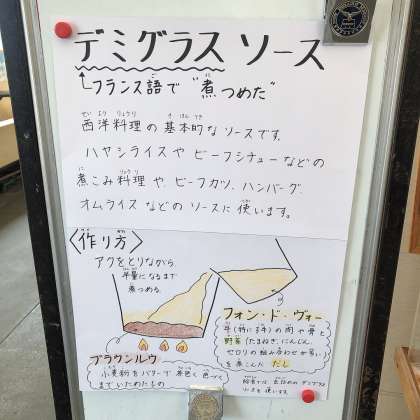 デミグラス ソース
フランス語で "煮つめた"
西洋料理の基本的なソースです。
ハヤシライスや ビーフシチューなどの
煮こみ料理や、ビーフカツ、ハンバーグ、
オムライス などの ソースに 使います。
〈作り方〉
アクをとりながら、
半量になるまで
煮つめる。
フォン・ド・ヴォー
牛(特に子牛)の肉や骨と
野菜(たまねぎ、にんじん、
セロリの組み合わせが多い)
を煮こんだ だし
ブラウンルウ
小麦粉をバターで 茶色く色づく
までいためたもの
給食では、
を使います。